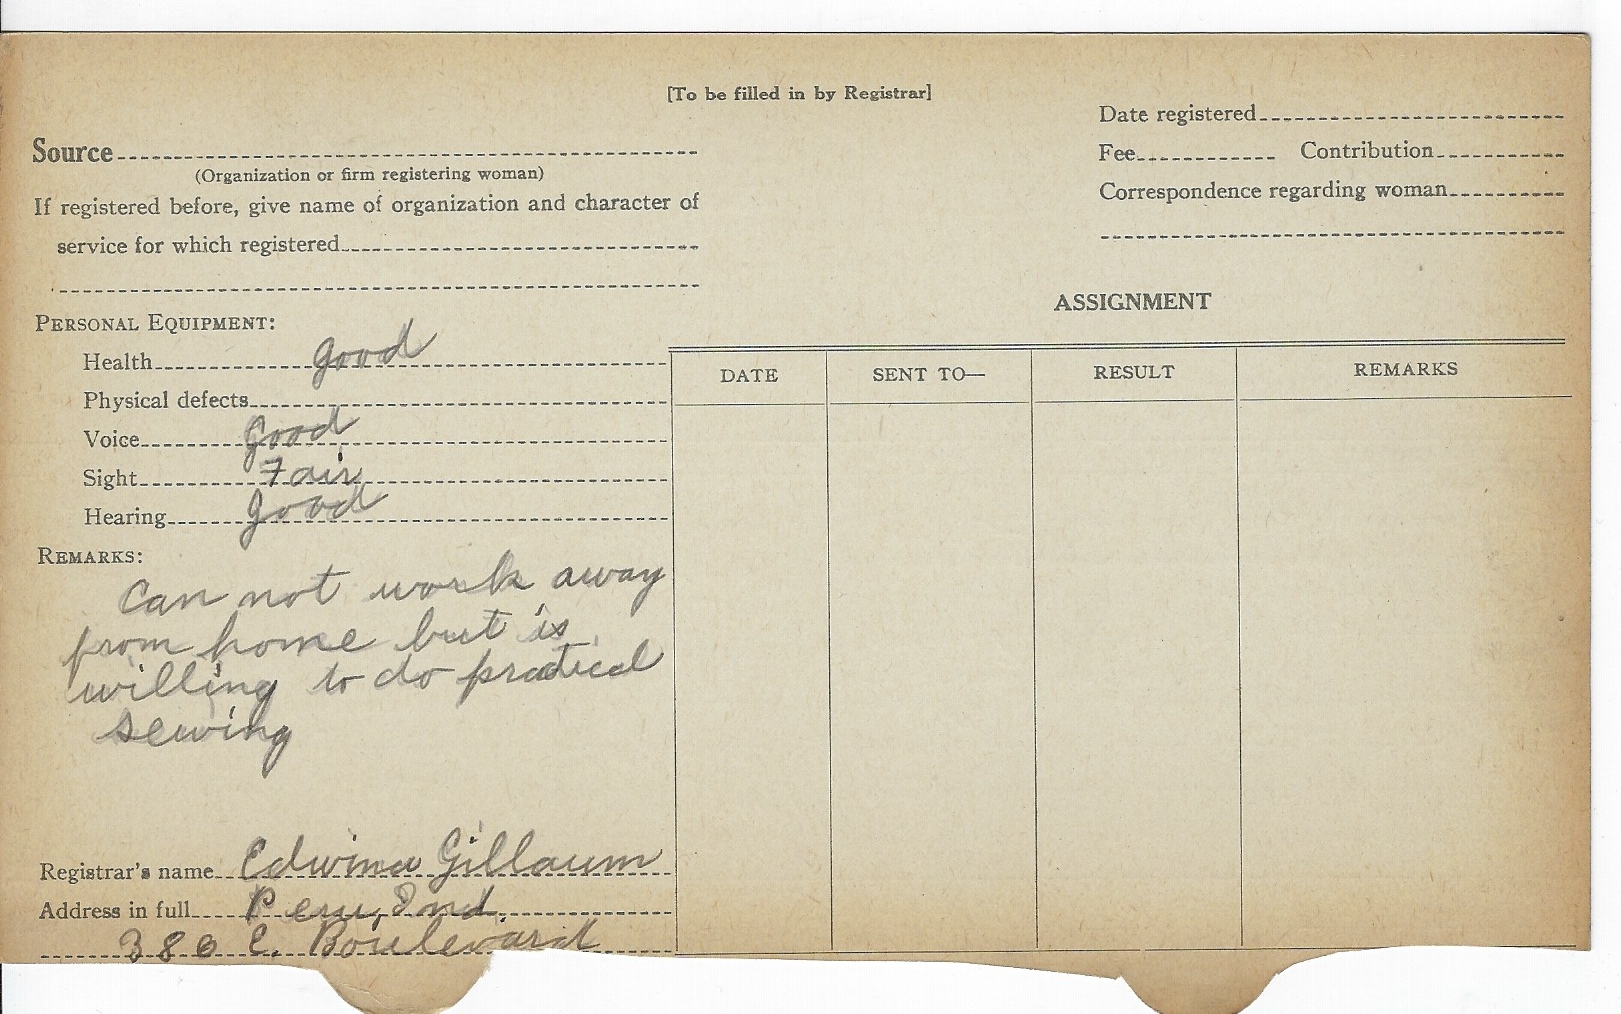 [To be filled in by Registrar]
Source
(Organization or firm registering woman)
If registered before, give name of organization and character of
service for which registered
Date registered
Fee Contribution
Correspondence regarding woman
PERSONAL EQUIPMENT:
Health good
Physical defects
Voice Good
Sight Fair
Hearing Good
REMARKS:
Can not work away
from home but is
willing to do pratical
sewing
Registrar's name Edwina Gillaum
Address in full Peru, Ind.
386 E. Boulevard
ASSIGNMENT
DATE SENT TO— RESULT REMARKS